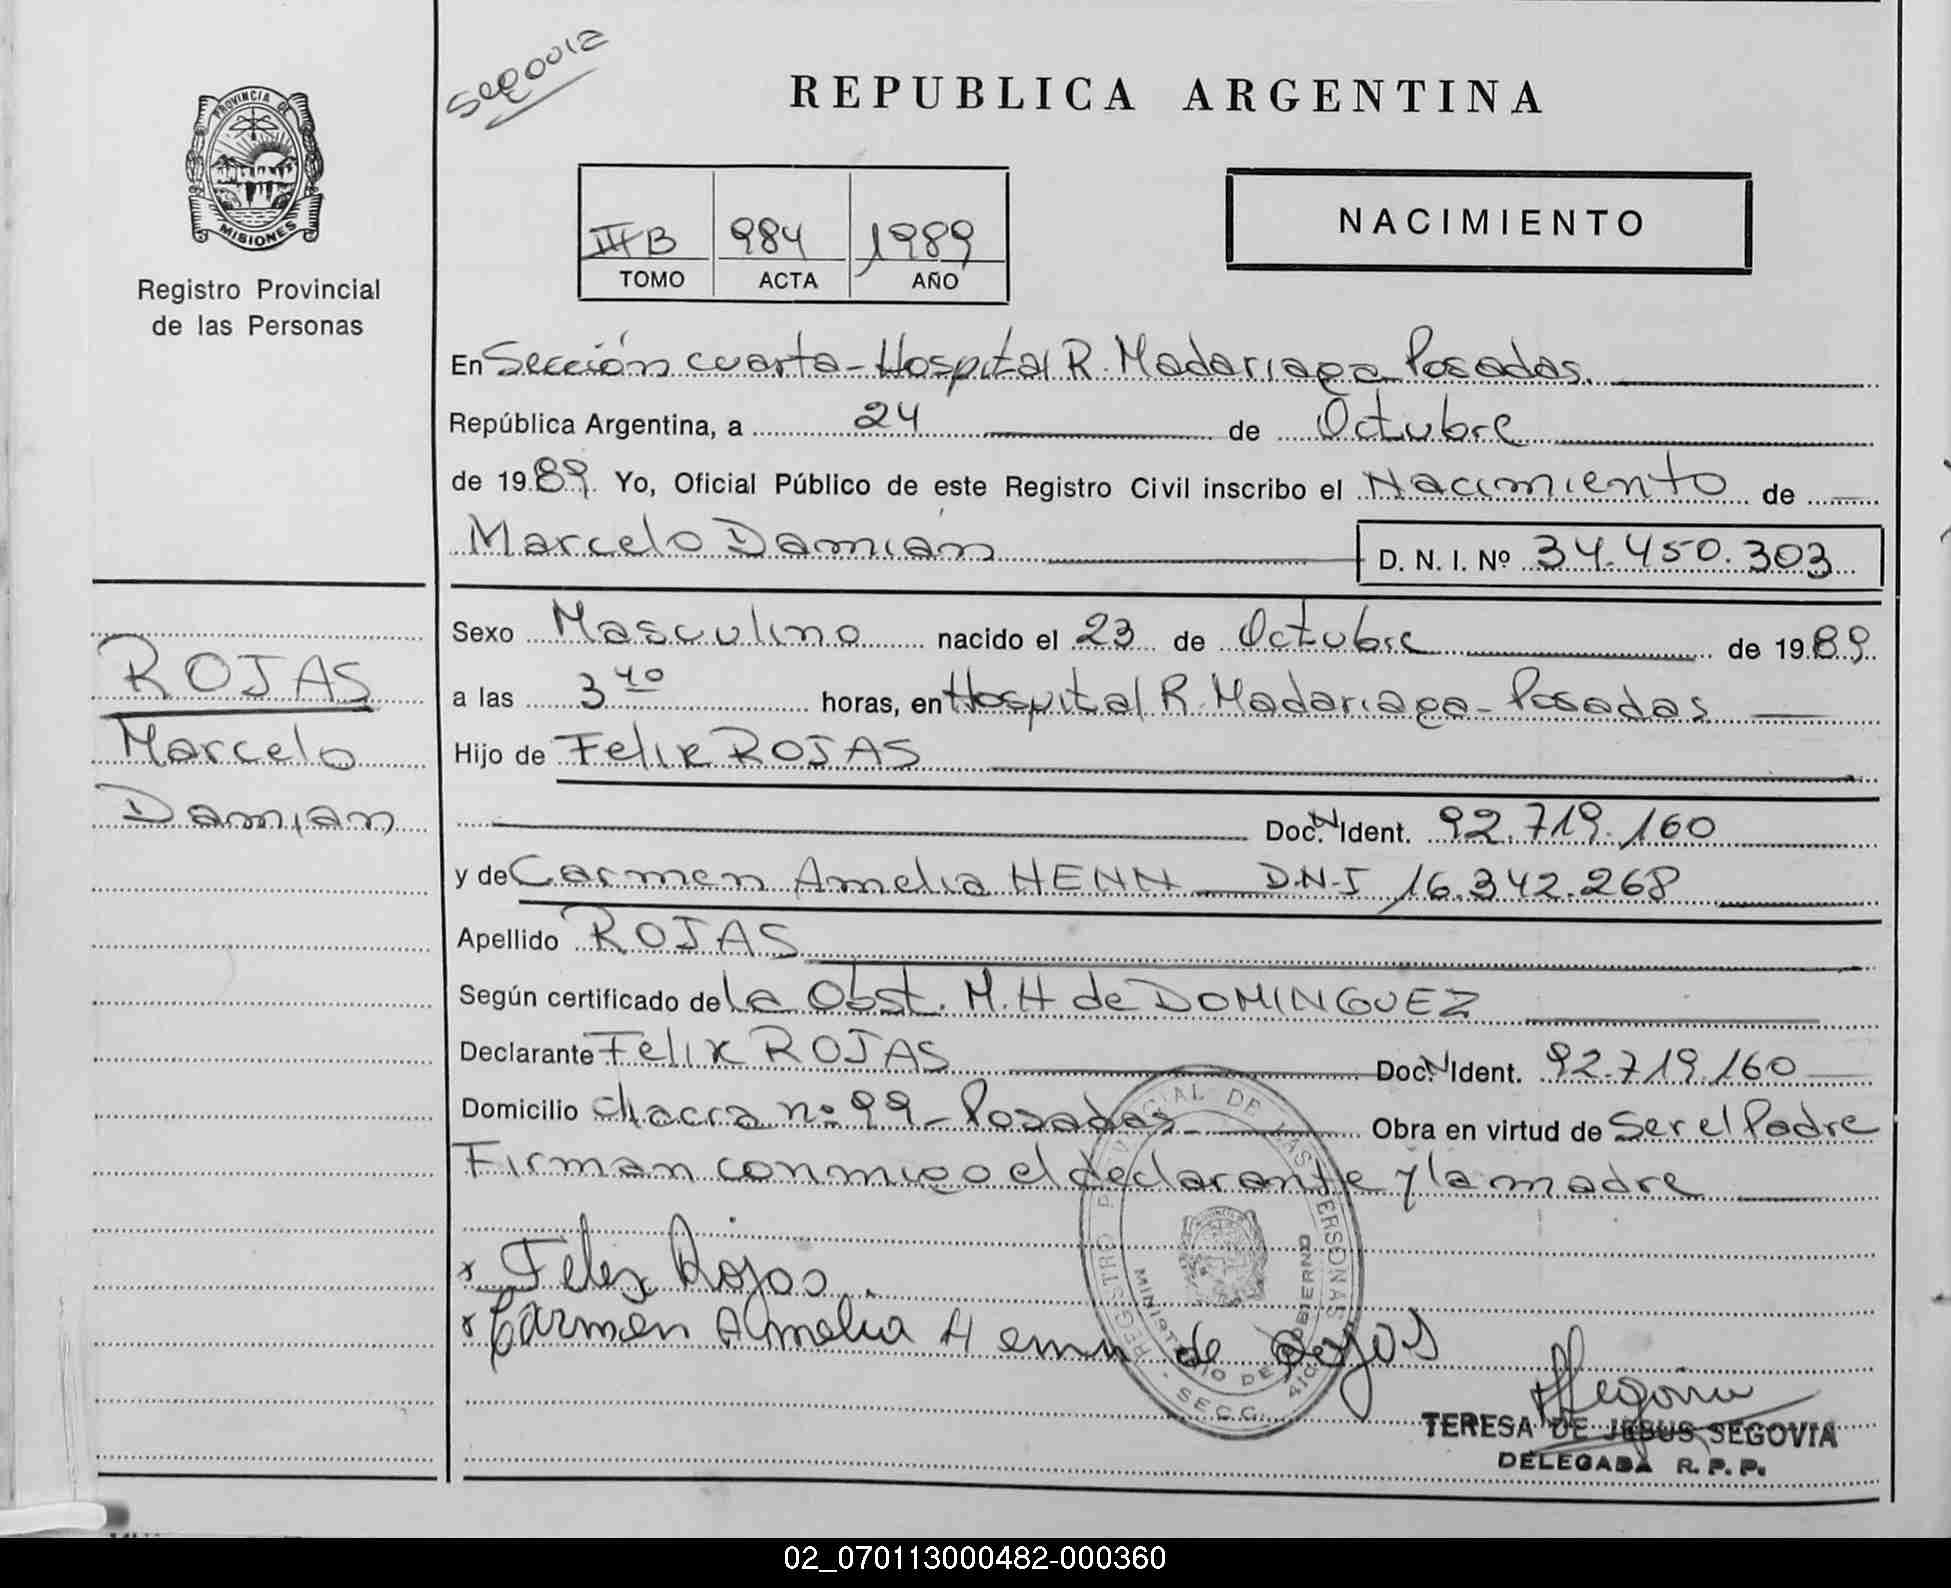 Segovia
PROVINCIA DE
MISIONES
Registro Provincial
de las Personas
REPUBLICA ARGENTINA
III B 984 1989
TOMO ACTA AÑO
NACIMIENTO
En Sección cuarta - Hospital R. Madariaga Posadas.
República Argentina, a 24 de Octubre
de 1989. Yo, Oficial Público de este Registro Civil inscribo el Nacimiento de
Marcelo Damián D. N. I. Nº 34.450.303
ROJAS
Marcelo
Damián
Sexo Masculino nacido el 23 de Octubre de 1989
a las 3 40 horas, en Hospital R. Madariaga - Posadas
Hijo de Felix ROJAS
Doc. N Ident. 92.719.160
y de Carmen Amelia HENN D.N.I 16.342.268
Apellido ROJAS
Según certificado de la Obst. M. H de DOMINGUEZ
Declarante Felix ROJAS Doc. N Ident. 92.719.160
Domicilio Chacra nº 99 - Posadas Obra en virtud de Ser el Padre
Firman conmigo el declarante y la madre
x Felix Rojas.
x Carmen Amelia Henn de Rojas
REGISTRO PROVINCIAL DE LAS PERSONAS
MINISTERIO DE GOBIERNO
SECC.
Segovia
TERESA DE JESUS SEGOVIA
DELEGADA R. P. P.
02_070113000482-000360